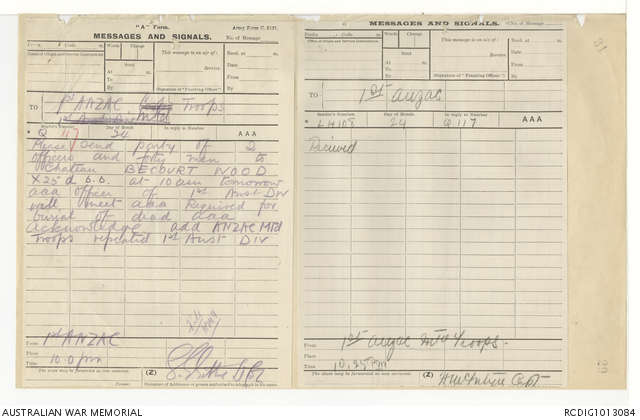 "A" Form.
Army Form C. 2121.
MESSAGES AND SIGNALS.
No. of Message
Prefix Code
Words
Charge
This message is on a/c of:
Recd. at m.
Office of Origin and Service Instructions.
Sent
Date
At m.
Service.
From
To
By
(Signature of "Franking Officer")
By
TO
1st ANZAC Troops
Sender's Number
Day of Month
In reply to Number
AAA
* Q 117 24
Please send party of 2
officers and forty men to
Chateau BECOURT WOOD
X 25 d 6.6. at 10 am tomorrow
aaa officer of 1st Aust Div
will meet aaa Required for
burial of dead aaa
acknowledge add ANZAC Mtd
Troops repeated 1st Aust Div
From 1st ANZAC
Place
Time 10.0 pm
The above may be forwarded as now corrected.
(Z)
Censor.
Signature of Addressor or person authorised to telegraph in his name
MESSAGES AND SIGNALS.
No. of Message
Prefix Code
Words
Charge
This message is on a/c of:
Recd. at m.
Office of Origin and Service Instructions.
Sent
Date
At m.
Service.
From
To
By
(Signature of "Franking Officer")
By
TO
1st Anzac
Sender's Number
Day of Month
In reply to Number
AAA
* LH108 24 Q 117
Received
From 1st Anzac Mtd Troops
Place
Time 10.25 pm
The above may be forwarded as now corrected.
(Z)
AUSTRALIAN WAR MEMORIAL
RCDIG1013084